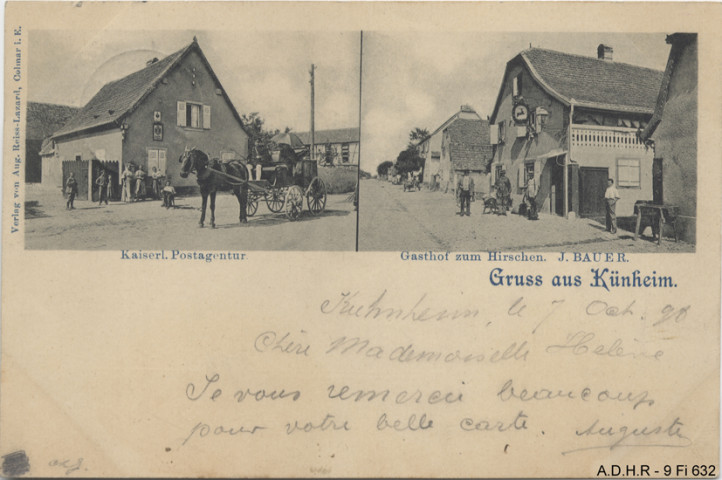 Verlag von Aug. Reiss-Lazard, Colmar i. E.
Kaiserl. Postagentur.
Gasthof zum Hirschen. J. BAUER.
Gruss aus Künheim.
Kuhnheim, le 7 Oct. 98
Chère Mademoiselle Helène
Je vous remercie beaucoup
pour votre belle carte. Auguste
A.D.H.R - 9 Fi 632